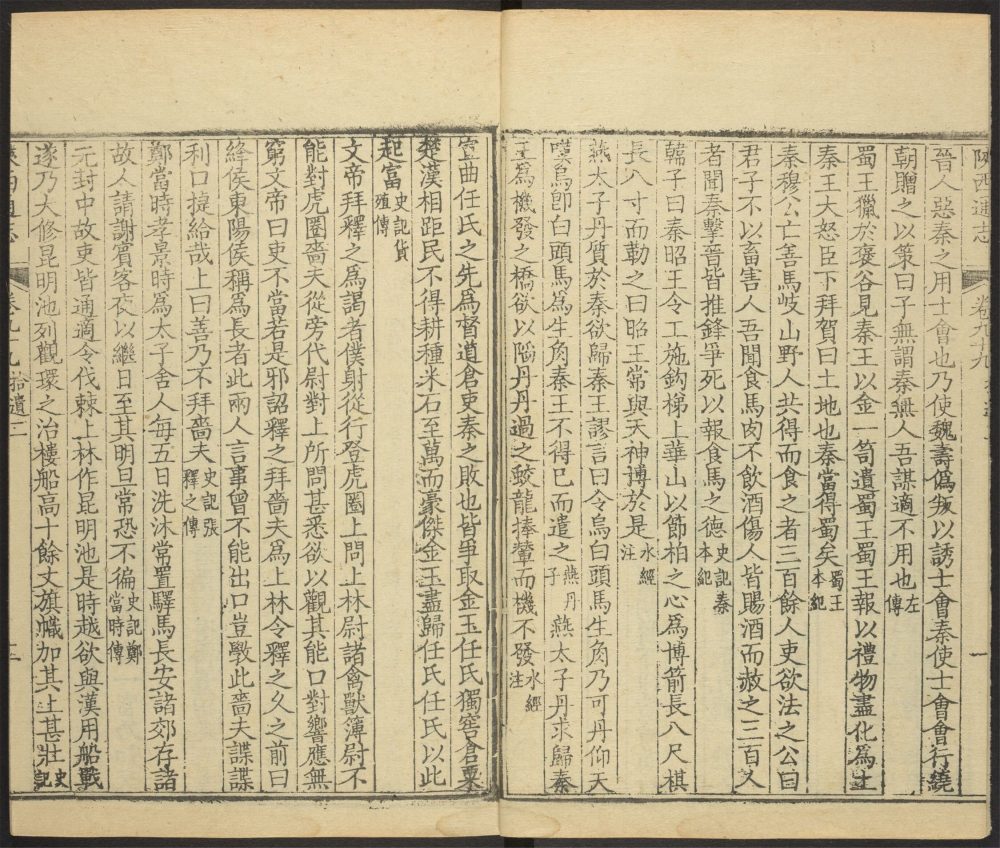 陝西通志
卷九十九
晉人惡秦之用士會也乃使魏壽僞叛以誘士會秦使士會會行繞
朝贈之以策曰子無謂秦無人吾謀適不用也左傳
蜀王獵於褒谷見秦王以金一笥遺蜀王蜀王報以禮物盡化為土
秦王大怒臣下拜賀曰土地也秦當得蜀矣蜀王本紀
秦穆公亡善馬岐山野人共得而食之者三百餘人吏欲法之公曰
君子不以畜害人吾聞食馬肉不飲酒傷人皆賜酒而赦之三百人
者聞秦擊晉皆推鋒爭死以報食馬之德史記秦本紀
韓子曰秦昭王令工施鈎梯上華山以節柏之心為博箭長八尺棋
長八寸而勒之曰昭王常與天神博於是水經注
燕太子丹質於秦欲歸秦王謬言曰令烏白頭馬生角乃可丹仰天
嘆烏即白頭馬為生角秦王不得已而遣之燕丹子 燕太子丹求歸秦
王為機發之橋欲以陷丹丹過之蛟龍捧轝而機不發水經注
一
宣曲任氏之先為督道倉吏秦之敗也皆爭取金玉任氏獨窖倉粟
楚漢相距民不得耕種米石至萬而豪傑金玉盡歸任氏任氏以此
起富史記貨殖傳
文帝拜釋之為謁者僕射從行登虎圈上問上林尉諸禽獸簿尉不
能對虎圈嗇夫從旁代尉對上所問甚悉欲以觀其能口對響應無
窮文帝曰吏不當若是邪詔釋之拜嗇夫為上林令釋之久之前曰
絳侯東陽侯稱為長者此兩人言事曾不能出口豈斆此嗇夫諜諜
利口捷給哉上曰善乃不拜嗇夫史記張釋之傳
鄭當時孝景時為太子舍人每五日洗沐常置驛馬長安諸郊存諸
故人請謝賓客夜以繼日至其明旦常恐不徧史記鄭當時傳
元封中故吏皆通適令伐棘上林作昆明池是時越欲與漢用船戰
遂乃大修昆明池列觀環之治樓船高十餘丈旗幟加其上甚壯史記
陝西通志
卷九十九拾遺二